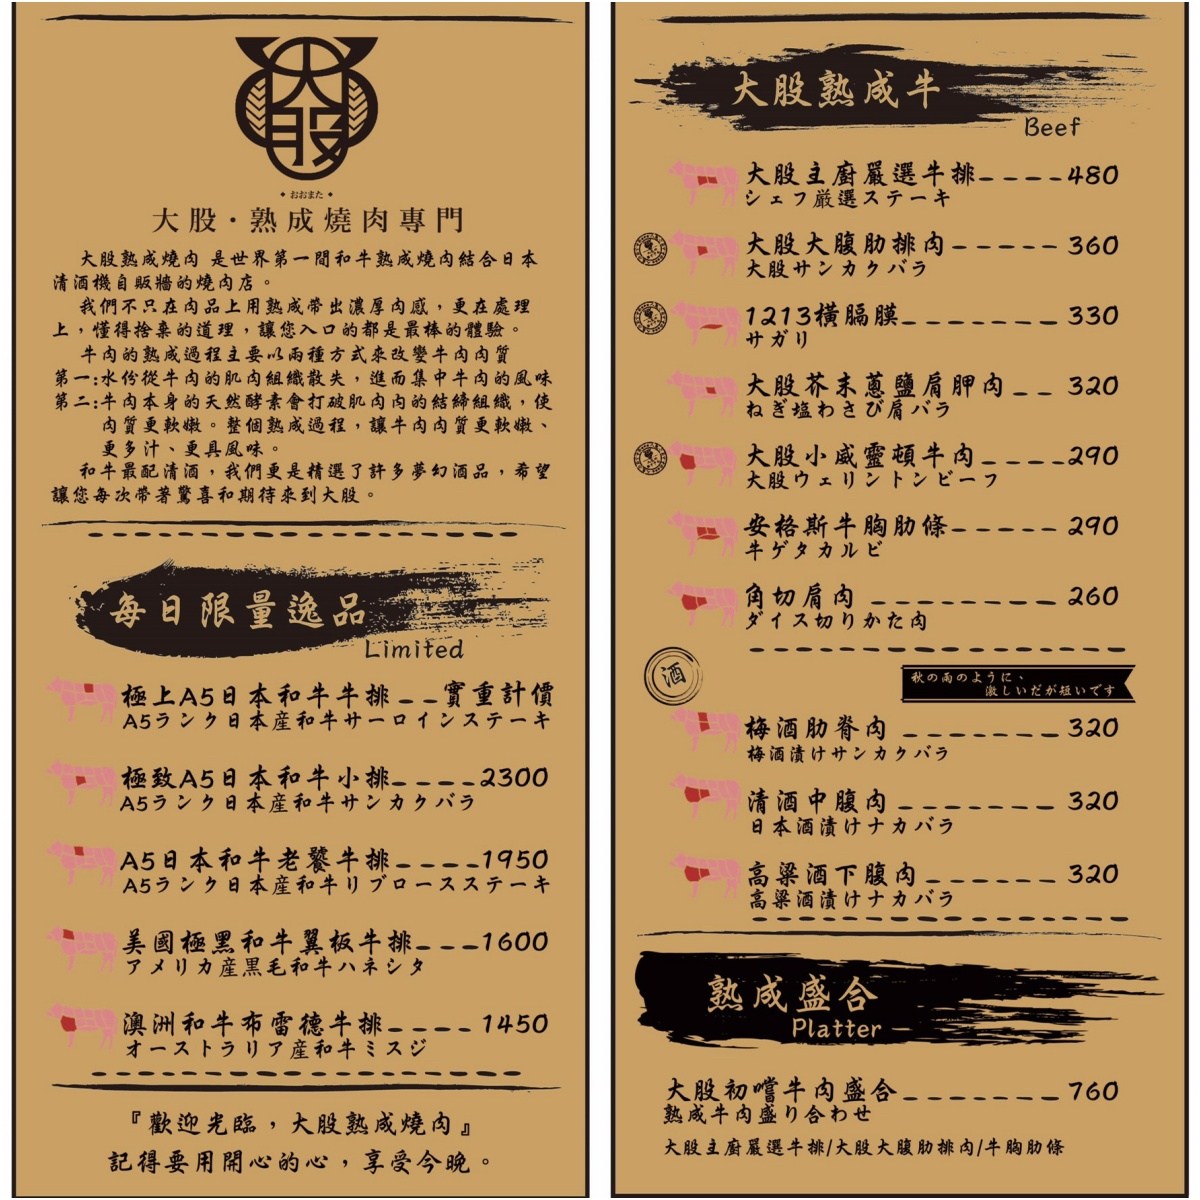 大股
おおまた
大股・熟成燒肉專門
大股熟成燒肉 是世界第一間和牛熟成燒肉結合日本
清酒機自販牆的燒肉店。
我們不只在肉品上用熟成帶出濃厚肉感，更在處理
上，懂得捨棄的道理，讓您入口的都是最棒的體驗。
牛肉的熟成過程主要以兩種方式來改變牛肉肉質
第一:水份從牛肉的肌肉組織散失，進而集中牛肉的風味
第二:牛肉本身的天然酵素會打破肌肉內的結締組織，使
肉質更軟嫩。整個熟成過程，讓牛肉肉質更軟嫩、
更多汁、更具風味。
和牛最配清酒，我們更是精選了許多夢幻酒品，希望
讓您每次帶著驚喜和期待來到大股。
每日限量逸品
Limited
極上A5日本和牛牛排__實重計價
A5ランク日本産和牛サーロインステーキ
極致A5日本和牛小排____2300
A5ランク日本産和牛サンカクバラ
A5日本和牛老饕牛排____1950
A5ランク日本産和牛リブロースステーキ
美國極黑和牛翼板牛排___1600
アメリカ産黒毛和牛ハネシタ
澳洲和牛布雷德牛排____1450
オーストラリア産和牛ミスジ
『歡迎光臨，大股熟成燒肉』
記得要用開心的心，享受今晚。
大股熟成牛
Beef
大股主廚嚴選牛排____480
シェフ厳選ステーキ
大股大腹肋排肉_____360
大股サンカクバラ
1213橫膈膜_______330
サガリ
大股芥末蔥鹽肩胛肉__320
ねぎ塩わさび肩バラ
大股小威靈頓牛肉____290
大股ウェリントンビーフ
安格斯牛胸肋條_____290
牛ゲタカルビ
角切肩肉________260
ダイス切りかた肉
酒
秋の雨のように、
激しいだが短いです
梅酒肋脊肉_______320
梅酒漬けサンカクバラ
清酒中腹肉_______320
日本酒漬けナカバラ
高粱酒下腹肉______320
高粱酒漬けナカバラ
熟成盛合
Platter
大股初嚐牛肉盛合______760
熟成牛肉盛り合わせ
大股主廚嚴選牛排/大股大腹肋排肉/牛胸肋條